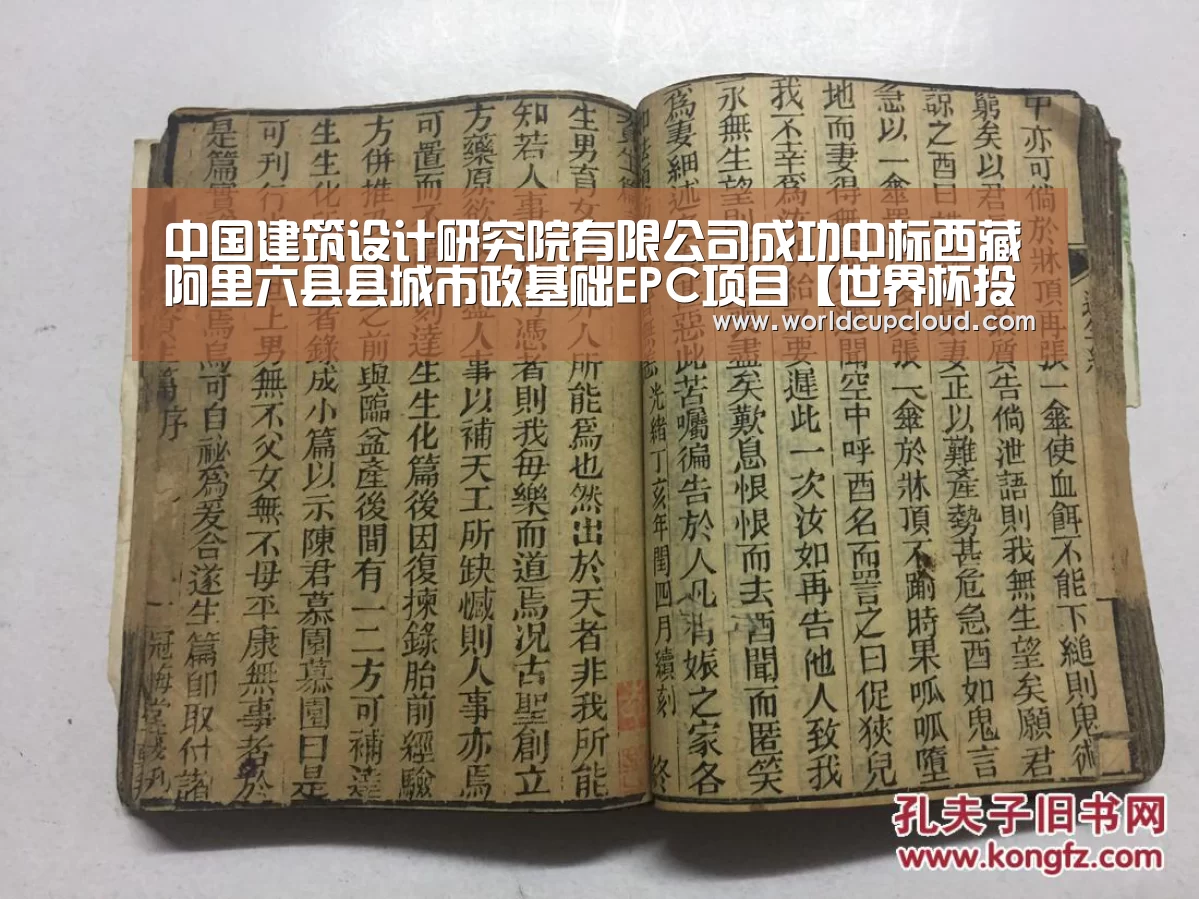 中国建筑设计研究院有限公司成功中标西藏
阿里六县县城市政基础EPC项目【世界杯投
www.worldcupcloud.com
中亦可倘於牀頂再張一傘使血餌不能下縋則鬼術
窮矣以君
質告倘泄語則我無生望矣願君
諒之酉曰
妻正以難產勢甚危急酉如鬼言
急以一傘
張一傘於牀頂不踰時果呱呱墮
地而妻得無
聞空中呼酉名而詈之曰促狹兒
我不幸爲
要遲此一次汝如再告他人致我
永無生望則
盡矣歎息恨恨而去酉聞而匿笑
爲妻細述
惡此苦囑徧告於人凡有娠之家各
光緒丁亥年閏四月續刻
終
生男育女
非人所能爲也然出於天者非我所能
知若人事
憑者則我每樂而道焉况古聖創立
方藥原欲
盡人事以補天工所缺憾則人事亦焉
可置而不
刻達生生化篇後因復揀錄胎前經驗
方併推
之前與臨盆產後間有一二方可補達
生生化
者錄成小篇以示陳君慕園慕園曰是
可刊行
上男無不父女無不母平康無事者於
是篇實
焉烏可自祕爲爰合遂生篇卽取付諸
序
一
冠悔堂
孔夫子旧书网
www.kongfz.com